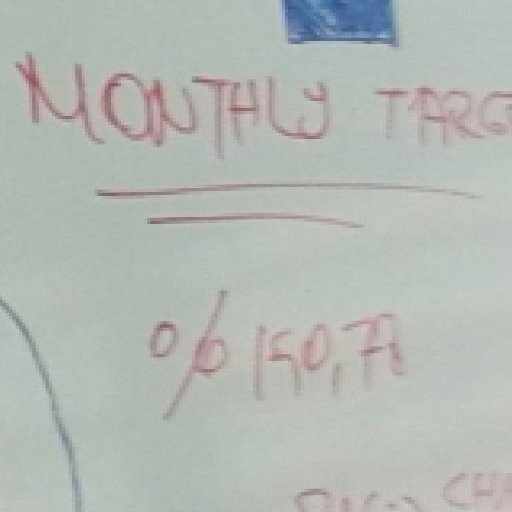 MONTHLY TARG
% 150,78